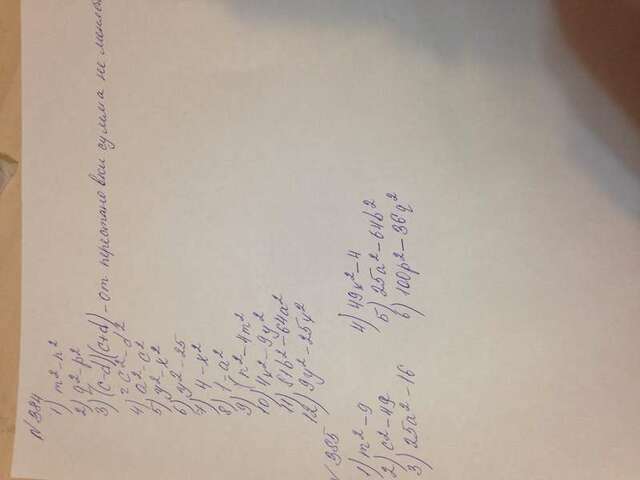 N 384
1) m²-n²
2) q²-p²
3) (c-d)(c+d) - от перестановки сумма не
4) c²-d²
a²-c²
5) y²-x²
6) y²-25
7) 4-x²
8) 1-a²
9) n²-4m²
10) 4x²-9y²
11) 81b²-64a²
12) 9y²-25y²
N 385
1) m²-9
2) c²-49
3) 25a²-16
4) 49x²-4
5) 25a²-64b²
6) 100p²-36q²